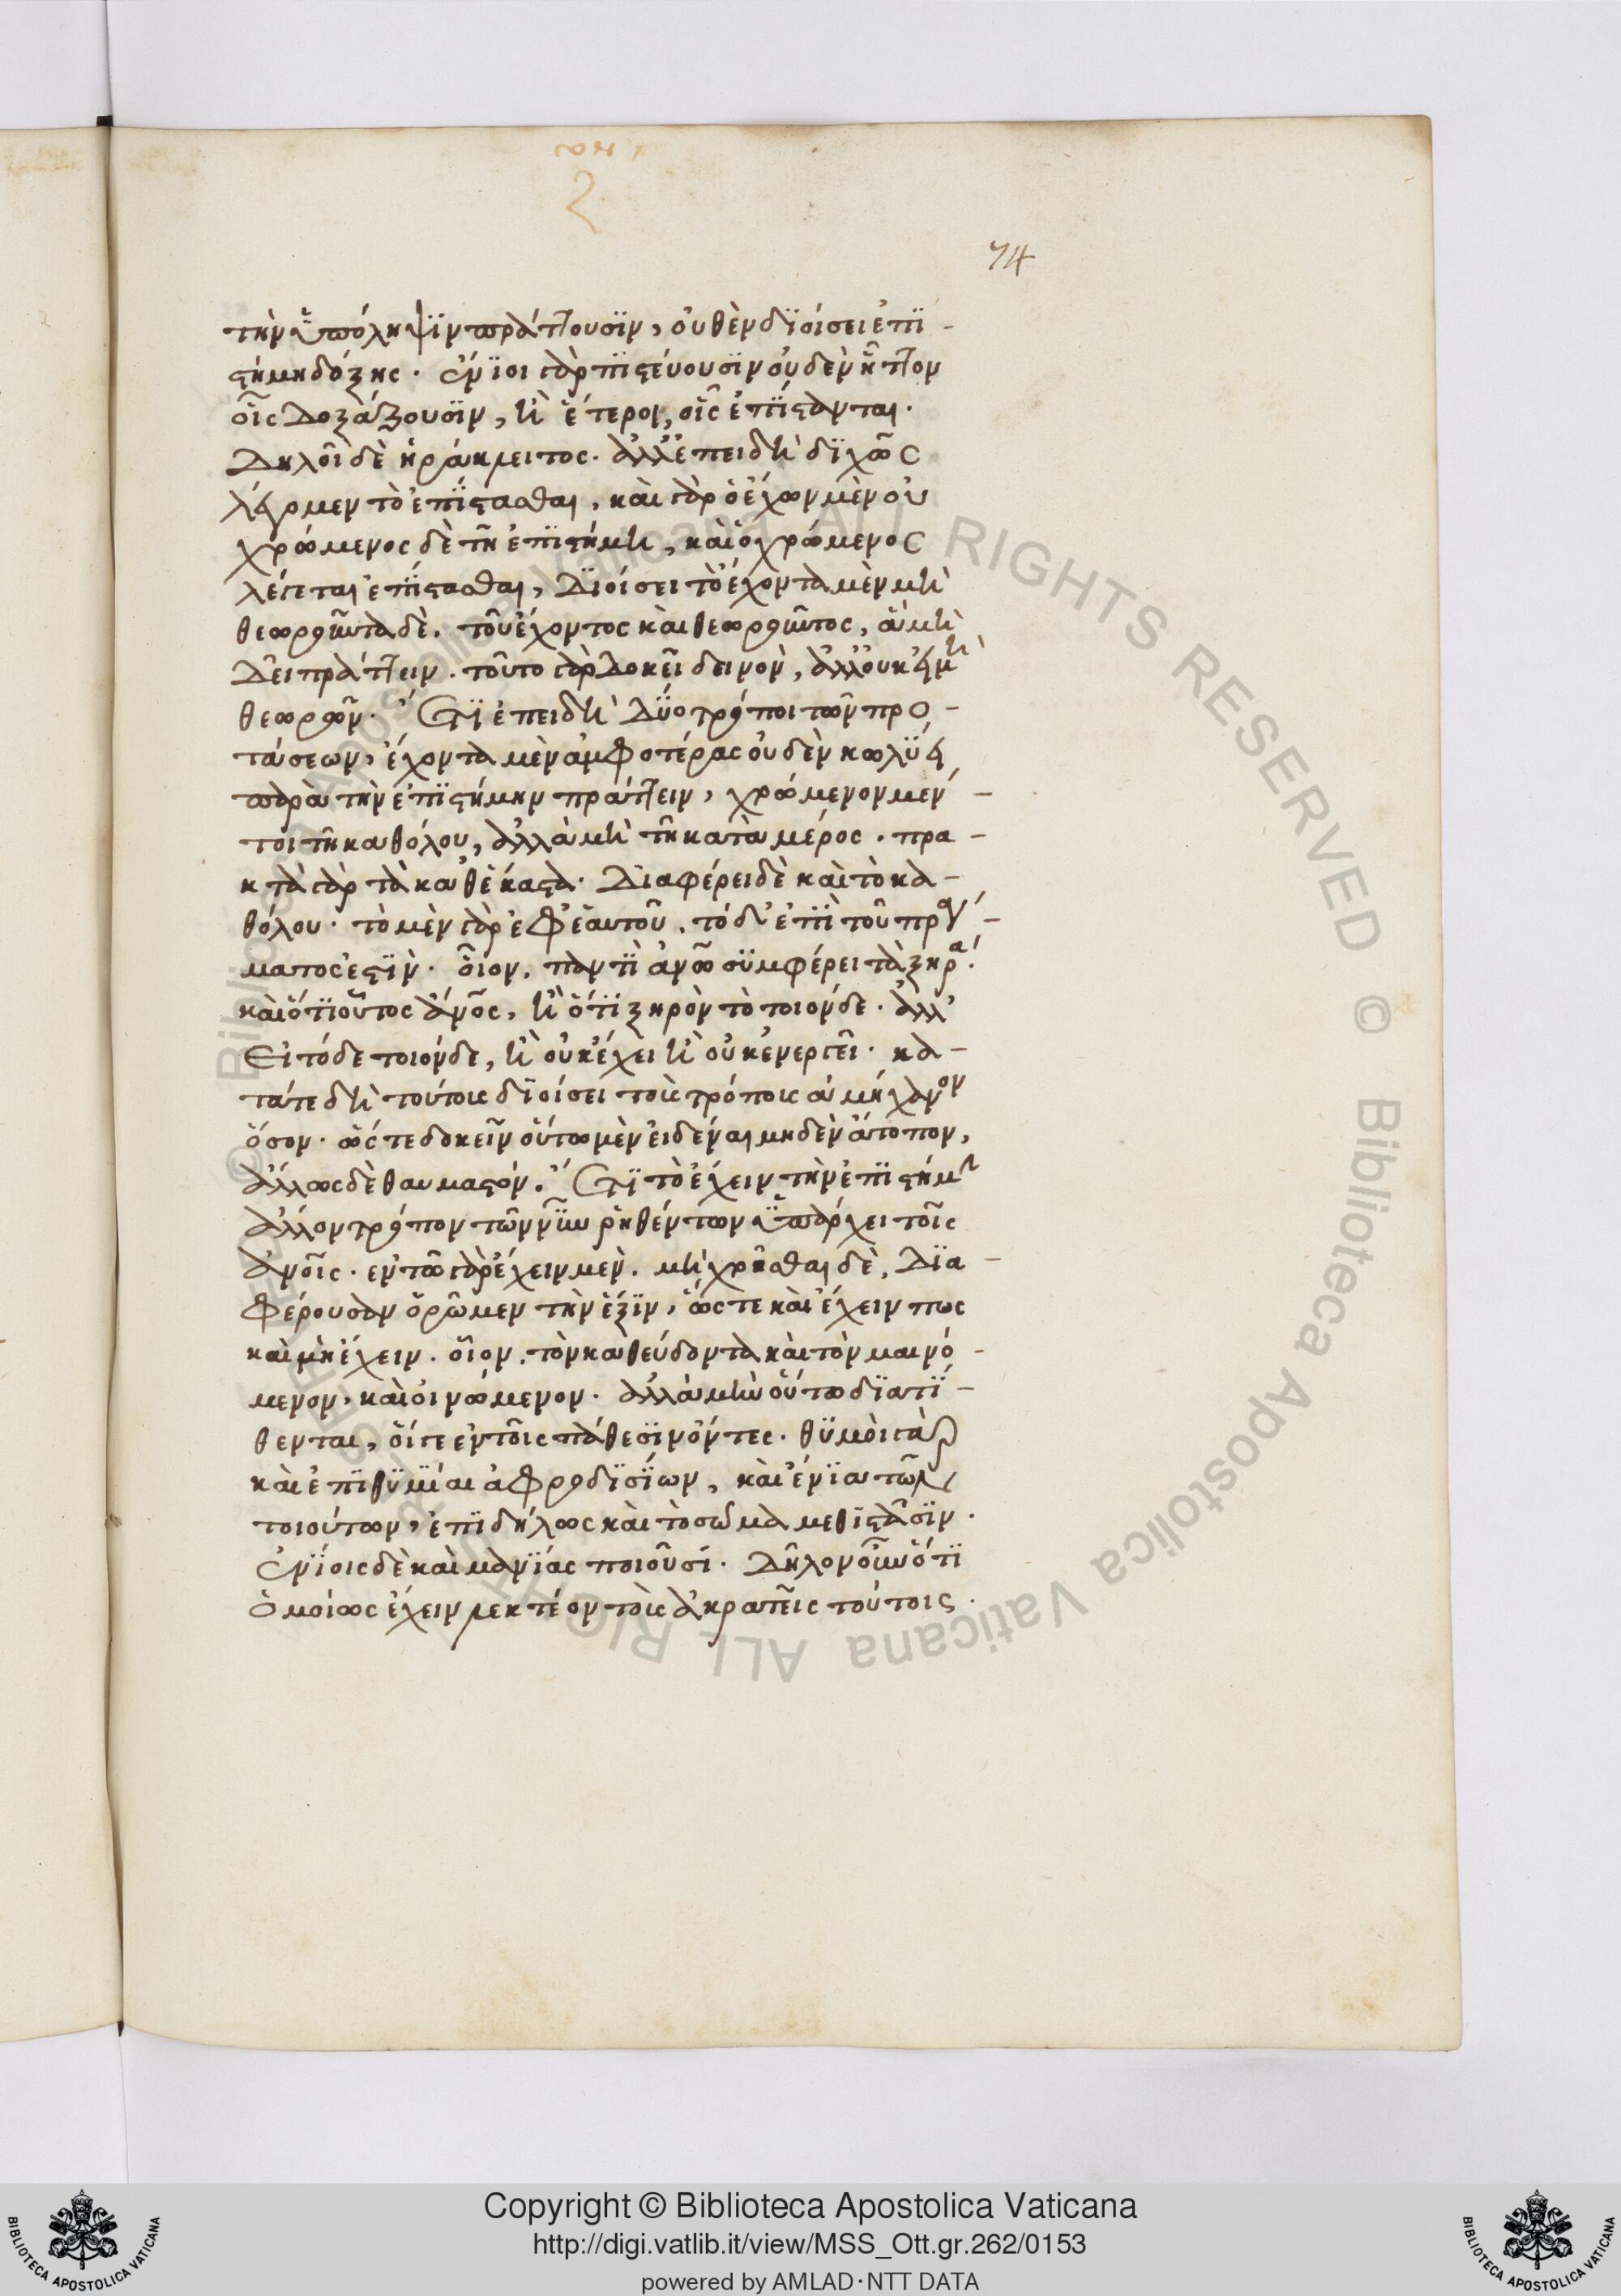 74
τὴν ὑπόληψϊν πράττουσϊν, οὐθὲν δϊοίσει ἐπϊ-
στήμη δόξης. ἔνϊοι γὰρ πϊστεύουσϊν οὐδὲν ἧττον
οἷς δοξάζουσϊν, ἢ ἕτεροι, οἷς ἐπΐστανται.
Δηλοῖ δὲ ἡράκλειτος. ἀλλ' ἐπειδὴ δϊχῶς
λέγομεν τὸ ἐπΐστασθαι, καὶ γὰρ ὁ ἔχων μὲν οὐ
χρώμενος δὲ τῆ ἐπϊστήμη, καὶ ὁ χρώμενος
λέγεται ἐπΐστασθαι, Δϊοίσει τὸ ἔχοντα μὲν μὴ
θεωροῦντα δὲ. τοῦ ἔχοντος καὶ θεωροῦντος, ἃ μὴ
Δεῖ πράττειν. τοῦτο γὰρ δοκεῖ δεινὸν, ἀλλ' οὐκ εἰ μὴ
θεωρῶν. Ἔτϊ ἐπειδὴ Δύο τρόποι τῶν προ-
τάσεων, ἔχοντα μὲν ἀμφοτέρας οὐδὲν κωλΰει
παρὰ τὴν ἐπϊστήμην πράττειν, χρώμενον μέν-
τοι τῆ καθόλου, ἀλλὰ μὴ τῆ κατὰ μέρος. πρα-
κτὰ γὰρ τὰ καθ' ἕκαστα. Διαφέρει δὲ καὶ τὸ κα-
θόλου. τὸ μὲν γὰρ ἐφ' ἑαυτοῦ. τὸ δ' ἐπῒ τοῦ πράγ-
ματος ἐστΐν. οἷον. παντῒ ἀνω συμφέρει τὰ ξηρά.
καὶ ὅτϊ οὗτος ἄνος, ἢ ὅτϊ ξηρὸν τὸ τοιόνδε. ἀλλ'
Εἰ τόδε τοιόνδε, ἢ οὐκ ἔχει ἢ οὐκ ἐνεργεῖ. κα-
τά τε δὴ τούτους δϊοίσει τοὺς τρόπους ἀμήχανον
ὅσον. ὥς τε δοκεῖν οὕτω μὲν εἰδέναι μηδὲν ἄτοπον,
ἄλλως δὲ θαυμαστόν. Ἔτϊ τὸ ἔχειν τὴν ἐπϊστήμην
ἄλλον τρόπον τῶν νῦν ῥηθέντων ὑπάρχει τοῖς
ἀνοις. ἐν τῶ γὰρ ἔχειν μὲν. μὴ χρῆσθαι δὲ, Δϊα-
φέρουσαν ὁρῶμεν τὴν ἕξϊν, ὥς τε καὶ ἔχειν πως
καὶ μὴ ἔχειν. οἷον. τὸν καθεύδοντα καὶ τὸν μαινό-
μενον, καὶ οἰνώμενον. ἀλλὰ μὴν οὕτω δϊατϊ-
θενται, οἵ γε ἐν τοῖς πάθεσϊν ὄντες. θυμοὶ γὰρ
καὶ ἐπϊθυμΐαι ἀφροδϊσΐων, καὶ ἔνϊα τῶν
τοιούτων, ἐπϊδήλως καὶ τὸ σῶμα μεθϊστᾶσϊν.
Ἐνΐοις δὲ καὶ μανΐας ποιοῦσί. Δῆλον οὖν ὅτϊ
ὁμοίως ἔχειν λεκτέον τοὺς ἀκρατεῖς τούτοις.
Copyright © Biblioteca Apostolica Vaticana
http://digi.vatlib.it/view/MSS_Ott.gr.262/0153
powered by AMLAD·NTT DATA
BIBLIOTECA APOSTOLICA VATICANA
BIBLIOTECA APOSTOLICA VATICANA
© Biblioteca Apostolica Vaticana ALL RIGHTS RESERVED © Biblioteca Apostolica Vaticana ALL RIGHTS RESERVED